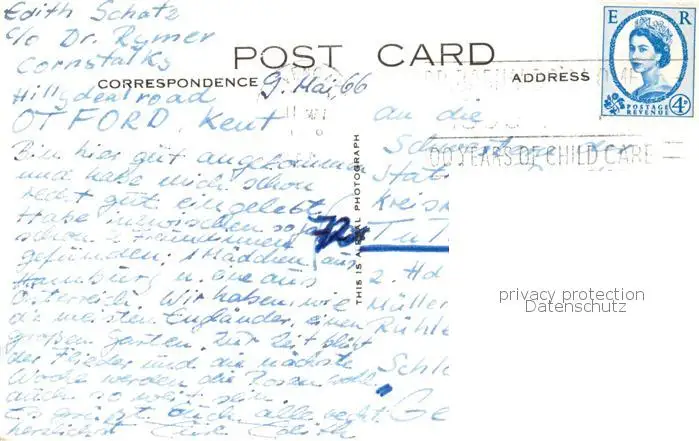 Edith Schatz
c/o Dr. Rymer
Cornstalks
Hillydeal road
OTFORD, Kent
POST CARD
CORRESPONDENCE
ADDRESS
9. Mai, 66
E R
POSTAGE
REVENUE
4D
00 YEARS OF CHILD CARE
THIS IS A REAL PHOTOGRAPH
Bin hier gut angekommen
und habe mich schon
recht gut eingelebt.
Habe inzwischen
schon 2 Freundinnen
gefunden; 1 Mädchen aus
Hamburg u. eine aus
Österreich. Wir haben, wie
die meisten Engländer, einen
großen Garten. Zur Zeit blüht
der Flieder und die nächste
Woche werden die Rosen wohl
auch so weit sein.
Es grüßt Euch alle recht
herzlichst Eure Edith
an die
Stat
Kreis
72
Tut
2. Hd
Müller
Rühle
Schl
Ge
privacy protection
Datenschutz